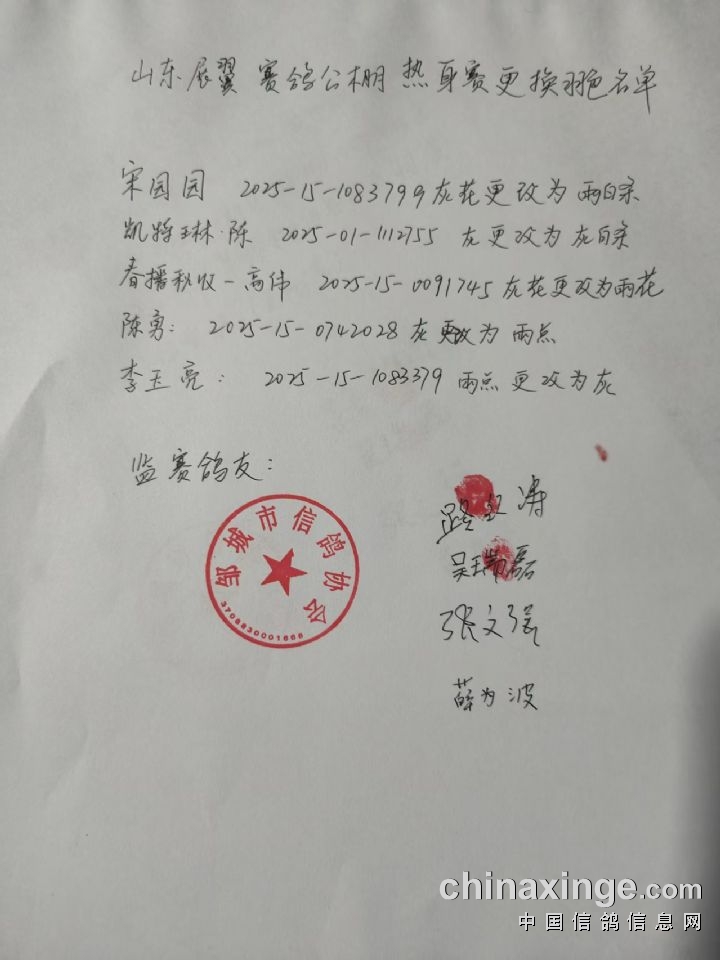 山东展翼赛鸽公棚热身赛更换羽色名单
宋园园 2025-15-1083799灰花更改为雨白条
凯特琳·陈 2025-01-1112755 灰更改为灰白条
春播秋收-高伟 2025-15-0091745灰花更改为雨花
陈勇: 2025-15-0742028灰更改为雨点
李玉亮: 2025-15-1083379雨点更改为灰
监赛鸽友:
邹城市信鸽协会
3708830001666
路红涛
吴瑞磊
张文强
薛为波
chinaxinge.com
中国信鸽信息网